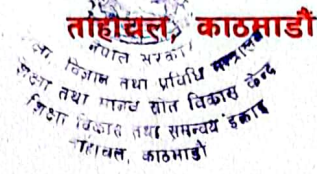 ताहाचल, काठमाडौं
नेपाल सरकार
शिक्षा, विज्ञान तथा प्रविधि मन्त्रालय
शिक्षा तथा मानव स्रोत विकास केन्द्र
शिक्षा विकास तथा समन्वय इकाइ
ताहाचल, काठमाडौं